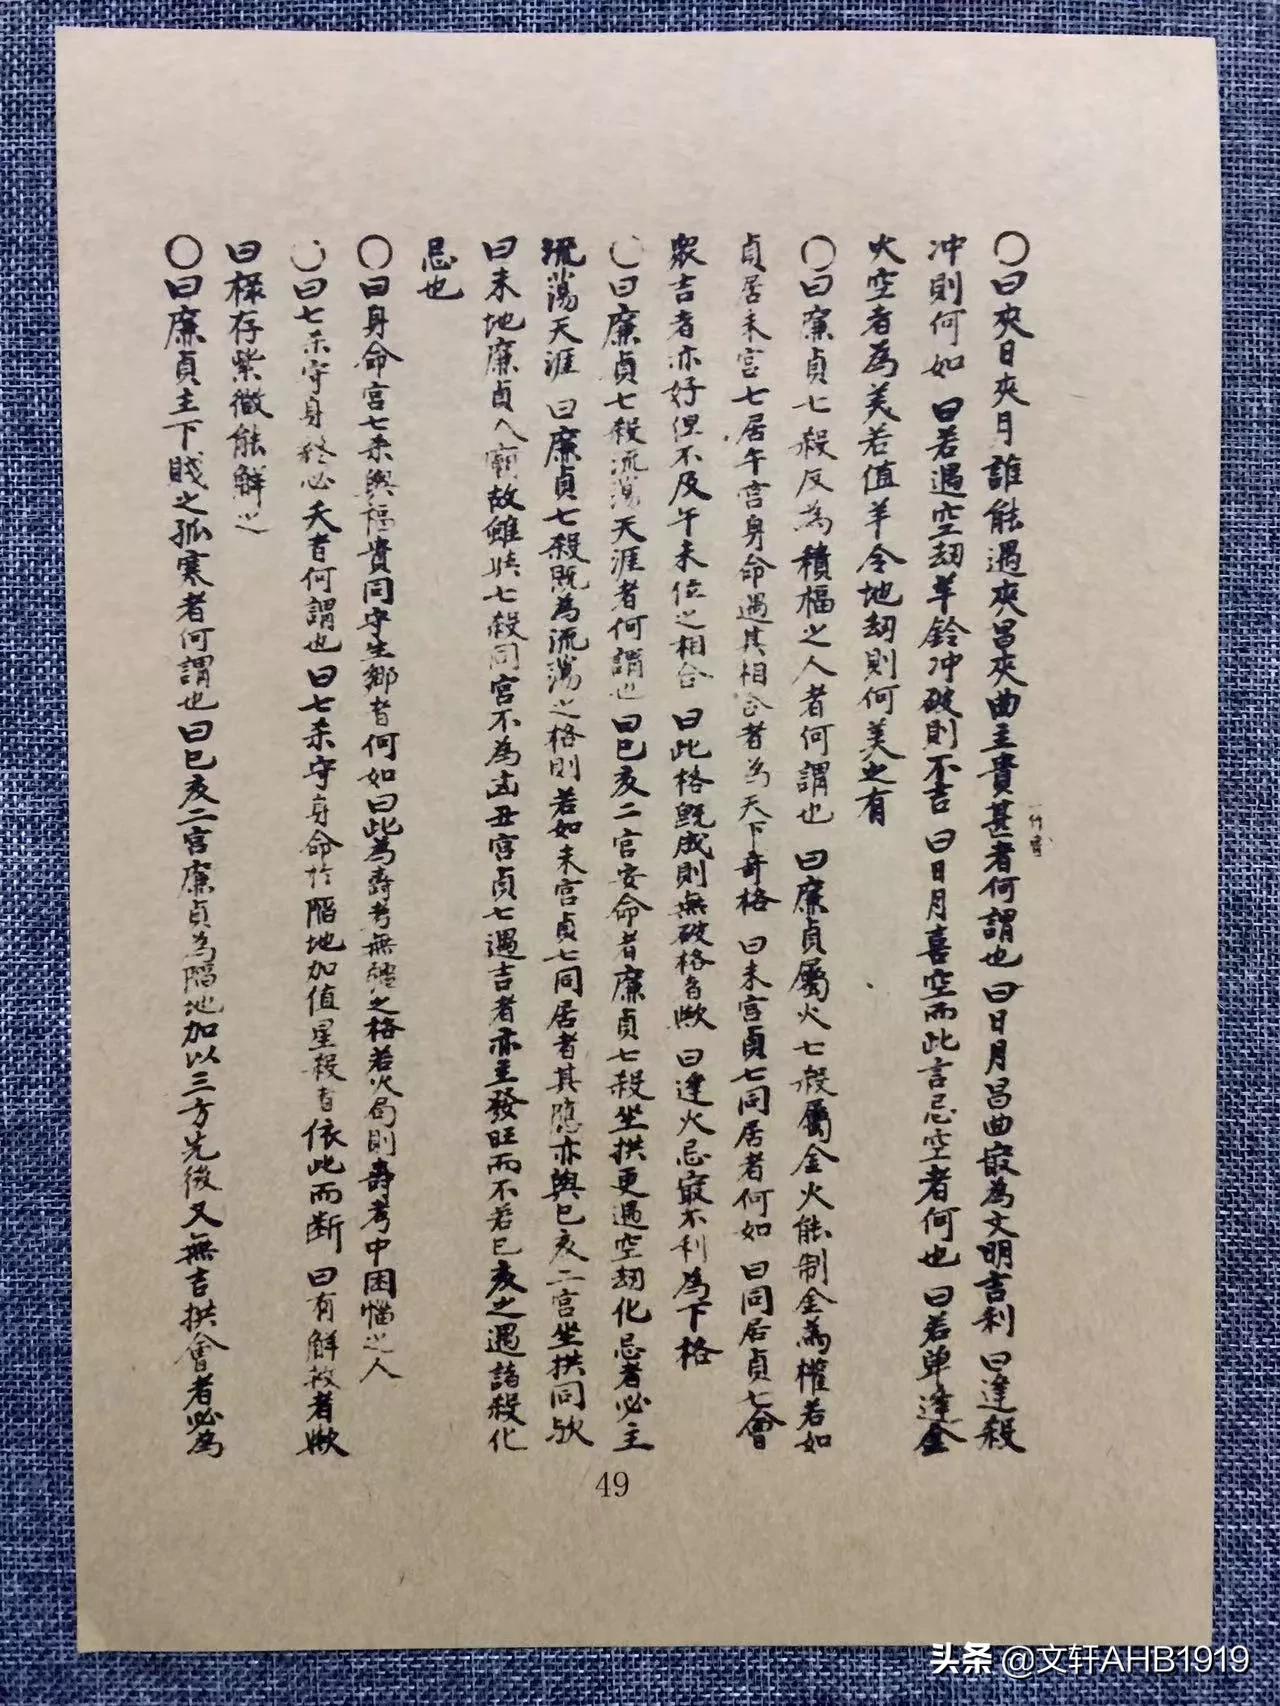 〇曰夾日夾月誰能遇夾昌夾曲主貴甚者何謂也曰日月昌曲最為文明吉利曰逢殺
冲則何如曰若遇空刼羊鈴冲破則不吉曰日月喜空而此言忌空者何也曰若单逢金
火空者為美若值羊令地刼則何美之有
〇曰廉貞七殺反為積福之人者何謂也曰廉貞屬火七殺屬金火能制金為權若如
貞居未宮七居午宮身命遇其相合者為天下奇格曰未宮貞七同居者何如曰同居貞七會
眾吉者亦好但不及午未位之相合曰此格既成則無破格者歟曰逢火忌最不利為下格
〇曰廉貞七殺流蕩天涯者何謂也曰巳亥二宮安命者廉貞七殺坐拱更遇空刼化忌者必主
流蕩天涯曰廉貞七殺既為流蕩之格則若如未宮貞七同居者其應亦與巳亥二宮坐拱同欤
曰未地廉貞入廟故雖與七殺同宮不為凶丑宮貞七遇吉者亦主發旺而不若巳亥之遇諸殺化
忌也
〇曰身命宮七杀與福貴同守生鄉者何如曰此為壽考無
之格若火局則壽考中困惱之人
〇曰七杀守身終必夭者何謂也曰七杀守身命於陷地加值星殺者依此而断曰有解救者歟
曰祿存紫微能解之
〇曰廉貞主下賤之孤寒者何謂也曰巳亥二宮廉貞為陷地加以三方先後又無吉拱會者必為
49
头条 @文轩AHB1919